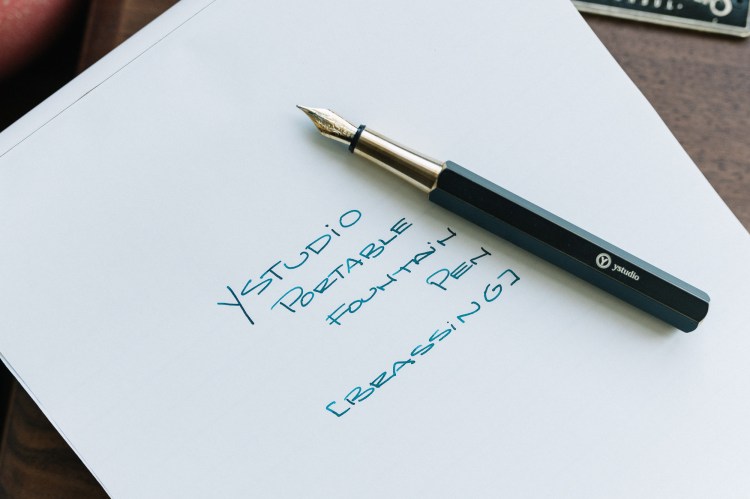 YSTUDIO
PORTABLE
FOUNTAIN
PEN
[BRASSING]
Y ystudio